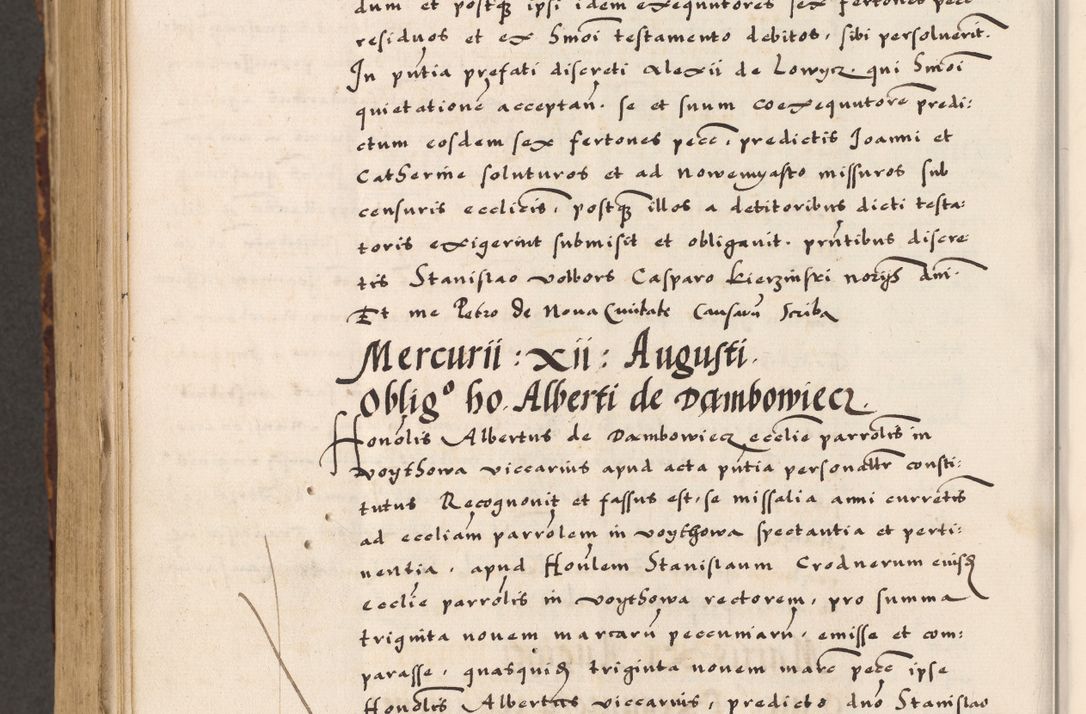 dum et postq̃ ipsi idem exequutores sex fertones pecc̃
residuos et ex Smõi testamento debitos, sibi persoluerit.
In pñtia prefati discreti Alexii de Lowycz. qui Smõi
quietationẽ acceptañ. se et suum coexequutorẽ predi:
ctum eosdem sex fertones pecc̃, predictis Joanni et
Catherine soluturos et ad Nowemyasto missuros sub
censuris ecclicis, postq̃ illos a detitoribus dicti testa:
toris exigerint submisit et obligauit. pñtibus discre
tis Stanislao Volbors Casparo Kierzinski noriis dni.
Et me Petro de Noua Ciuitate Causarũ Scriba
Mercurii : xii : Augusti.
Obligᵒ ho. Alberti de Dambowiecz.
Honõlis Albertus de Dambowiecz ecclie parrõlis in
Voythowa viccarius apud acta pñtia personaltr consti:
tutus Recognouit et fassus est, se missalia anni currẽtis
ad eccliam parrõlem in Voythowa spectantia et perti:
nentia, apud Hoñlem Stanislaum Crodnerum eiusdẽ
ecclie parrõlis in Voythowa rectorem, pro summa
triginta nouem marcarũ peccuniarũ, emisse et com:
parasse, quasquidẽ triginta nouem marc̃ pecc̃ ipse
Honõlis Albertus viccarius, predicto dno Stanislao